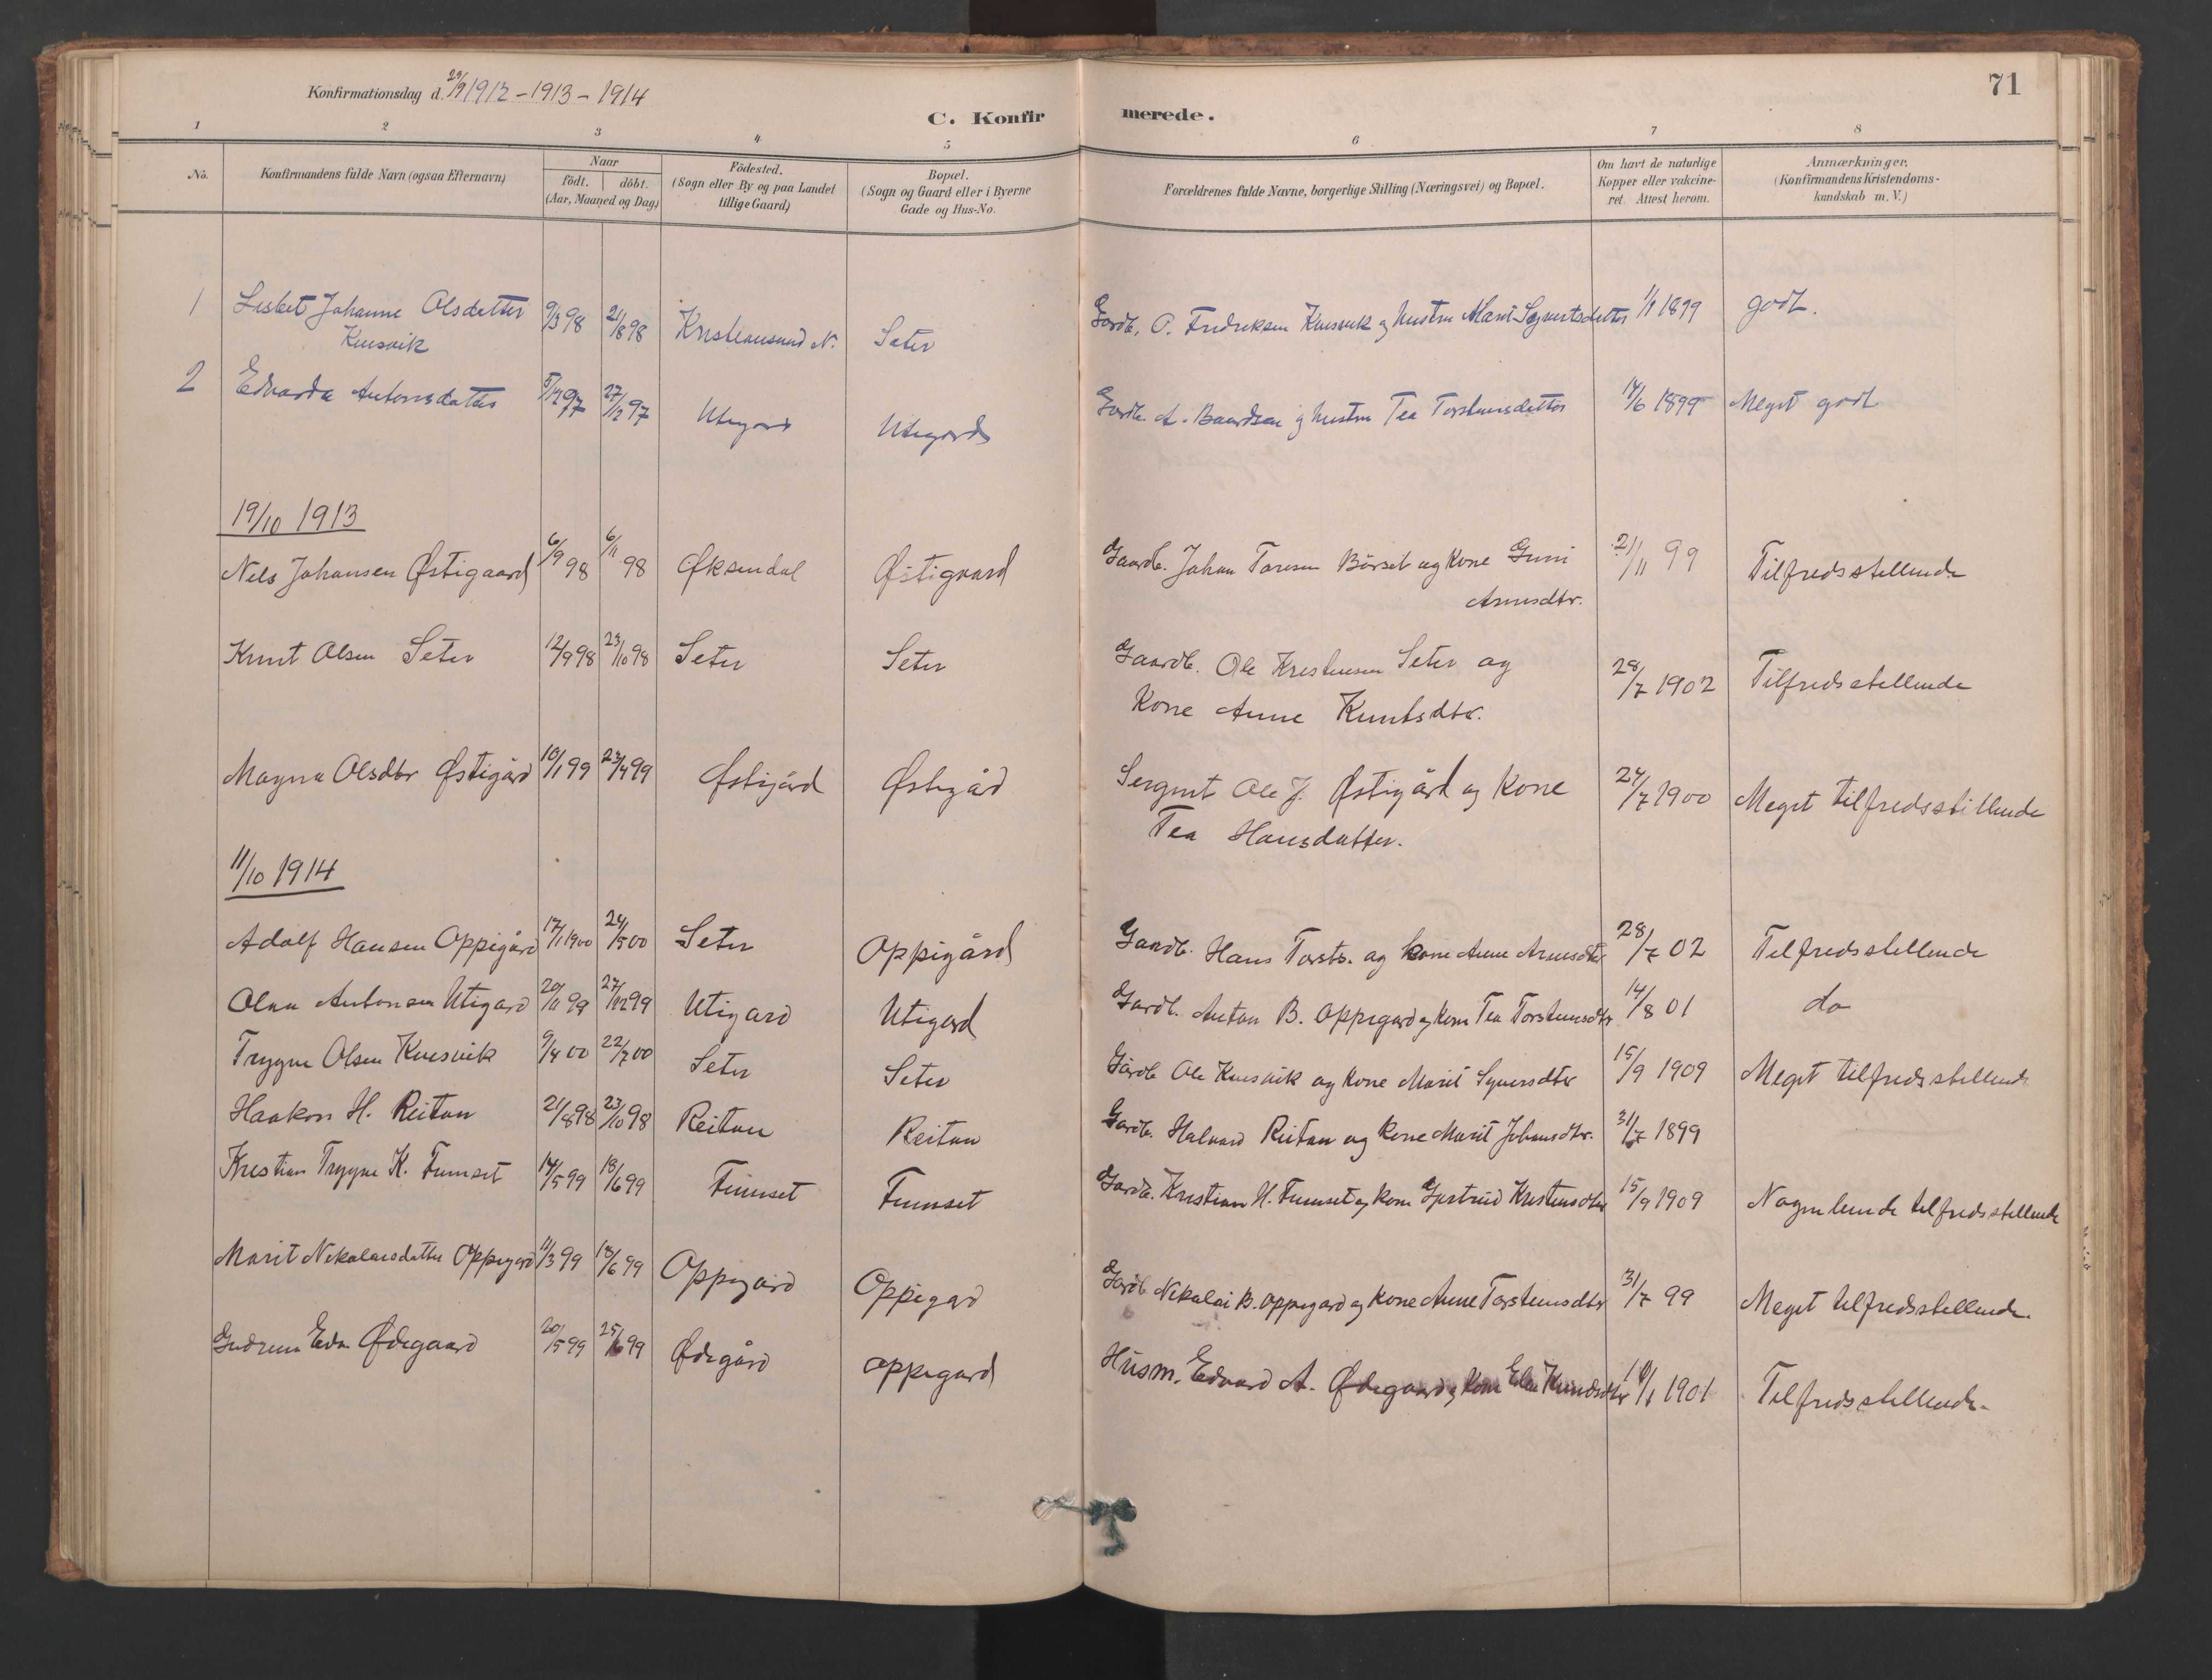 71
Konfirmationsdag d. 29/9 1912 - 1913 - 1914
C. Konfirmerede.
1 2 3 4 5 6 7 8
No. Konfirmandens fulde Navn (ogsaa Efternavn) Naar födt. döbt. (Aar, Maaned og Dag) Födested. (Sogn eller By og paa Landet tillige Gaard) Bopæl. (Sogn og Gaard eller i Byerne Gade og Hus-No. Forældrenes fulde Navne, borgerlige Stilling (Næringsvei) og Bopæl. Om havt de naturlige Kopper eller vakcineret. Attest herom. Anmærkninger. (Konfirmandens Kristendomskundskab m. V.)
1 Lisbet Johanne Olsdatter 9/3 98 21/8 98 Kristiansund N. Seter Gardb. O. Fredriksen Knesvik og hustru Marit Syvertsdatter 1/1 1899 godt.
Knesvik
2 Edvarda Antonsdatter 97 27/12 97 Utegard Utegard Gardb. A. Baardsen og hustru Tea Torstensdatter 14/6 1899 Meget godt
19/10 1913
Nels Johansen Østigaard 6/9 98 6/11 98 Øksendal Østigaard Gaardb. Johan Toresen Börset og Kone Guni 21/11 99 Tilfredsstellende
Arnesdtr.
Knut Olsen Seter 12/9 98 23/10 98 Seter Seter Gaardb. Ole Kristensen Seter og 28/7 1902 Tilfredsstellende
Kone Anne Knutsdtr.
Magna Olsdtr Østigård 10/1 99 23/4 99 Østigård Østigård Sergent Ole J. Østigård og Kone 24/7 1900 Meget tilfredsstillende
Tea Hansdatter.
11/10 1914
Adolf Hansen Oppigård 17/1 1900 24/5 00 Seter Oppigård Gaardb. Hans Torsts. og kone Anne Arnesdtr 28/7 02 Tilfredsstellende
Olav Antonsen Utigard 20/11 99 27/12 99 Utigard Utigard Gardb. Anton B. Oppegard og kone Tea Torstensdtr 14/8 01 do
Trygve Olsen Knesvik 9/4 00 22/7 00 Seter Seter Gårdb Ole Knesvik og kone Marit Syversdtr 15/9 1909 Meget tilfredsstellende
Haakon H. Reitan 21/8 98 23/10 98 Reitan Reitan Gardb. Halvard Reitan og kone Marit Johansdtr. 31/7 1899
Kristian Trygve K. Finnset 14/5 99 18/6 99 Finnset Finnset Gardb. Kristian H. Finnset og kone Gjertrud Kristensdtr 15/9 1909 Nogenlunde tilfredsstellende
Marit Nikolaisdatter Oppegard 11/3 99 18/6 99 Oppegard Oppigard Gardb. Nikolai B. Oppegard og kone Anne Torstensdtr 31/7 99 Meget tilfredsstellende.
Gudrun Edv. Ødegaard 20/5 99 25/6 99 Ødegård Oppegard Husm. Edvard A. Ødegaard og kone Elen Knudsdtr 1901 Tilfredsstellende.